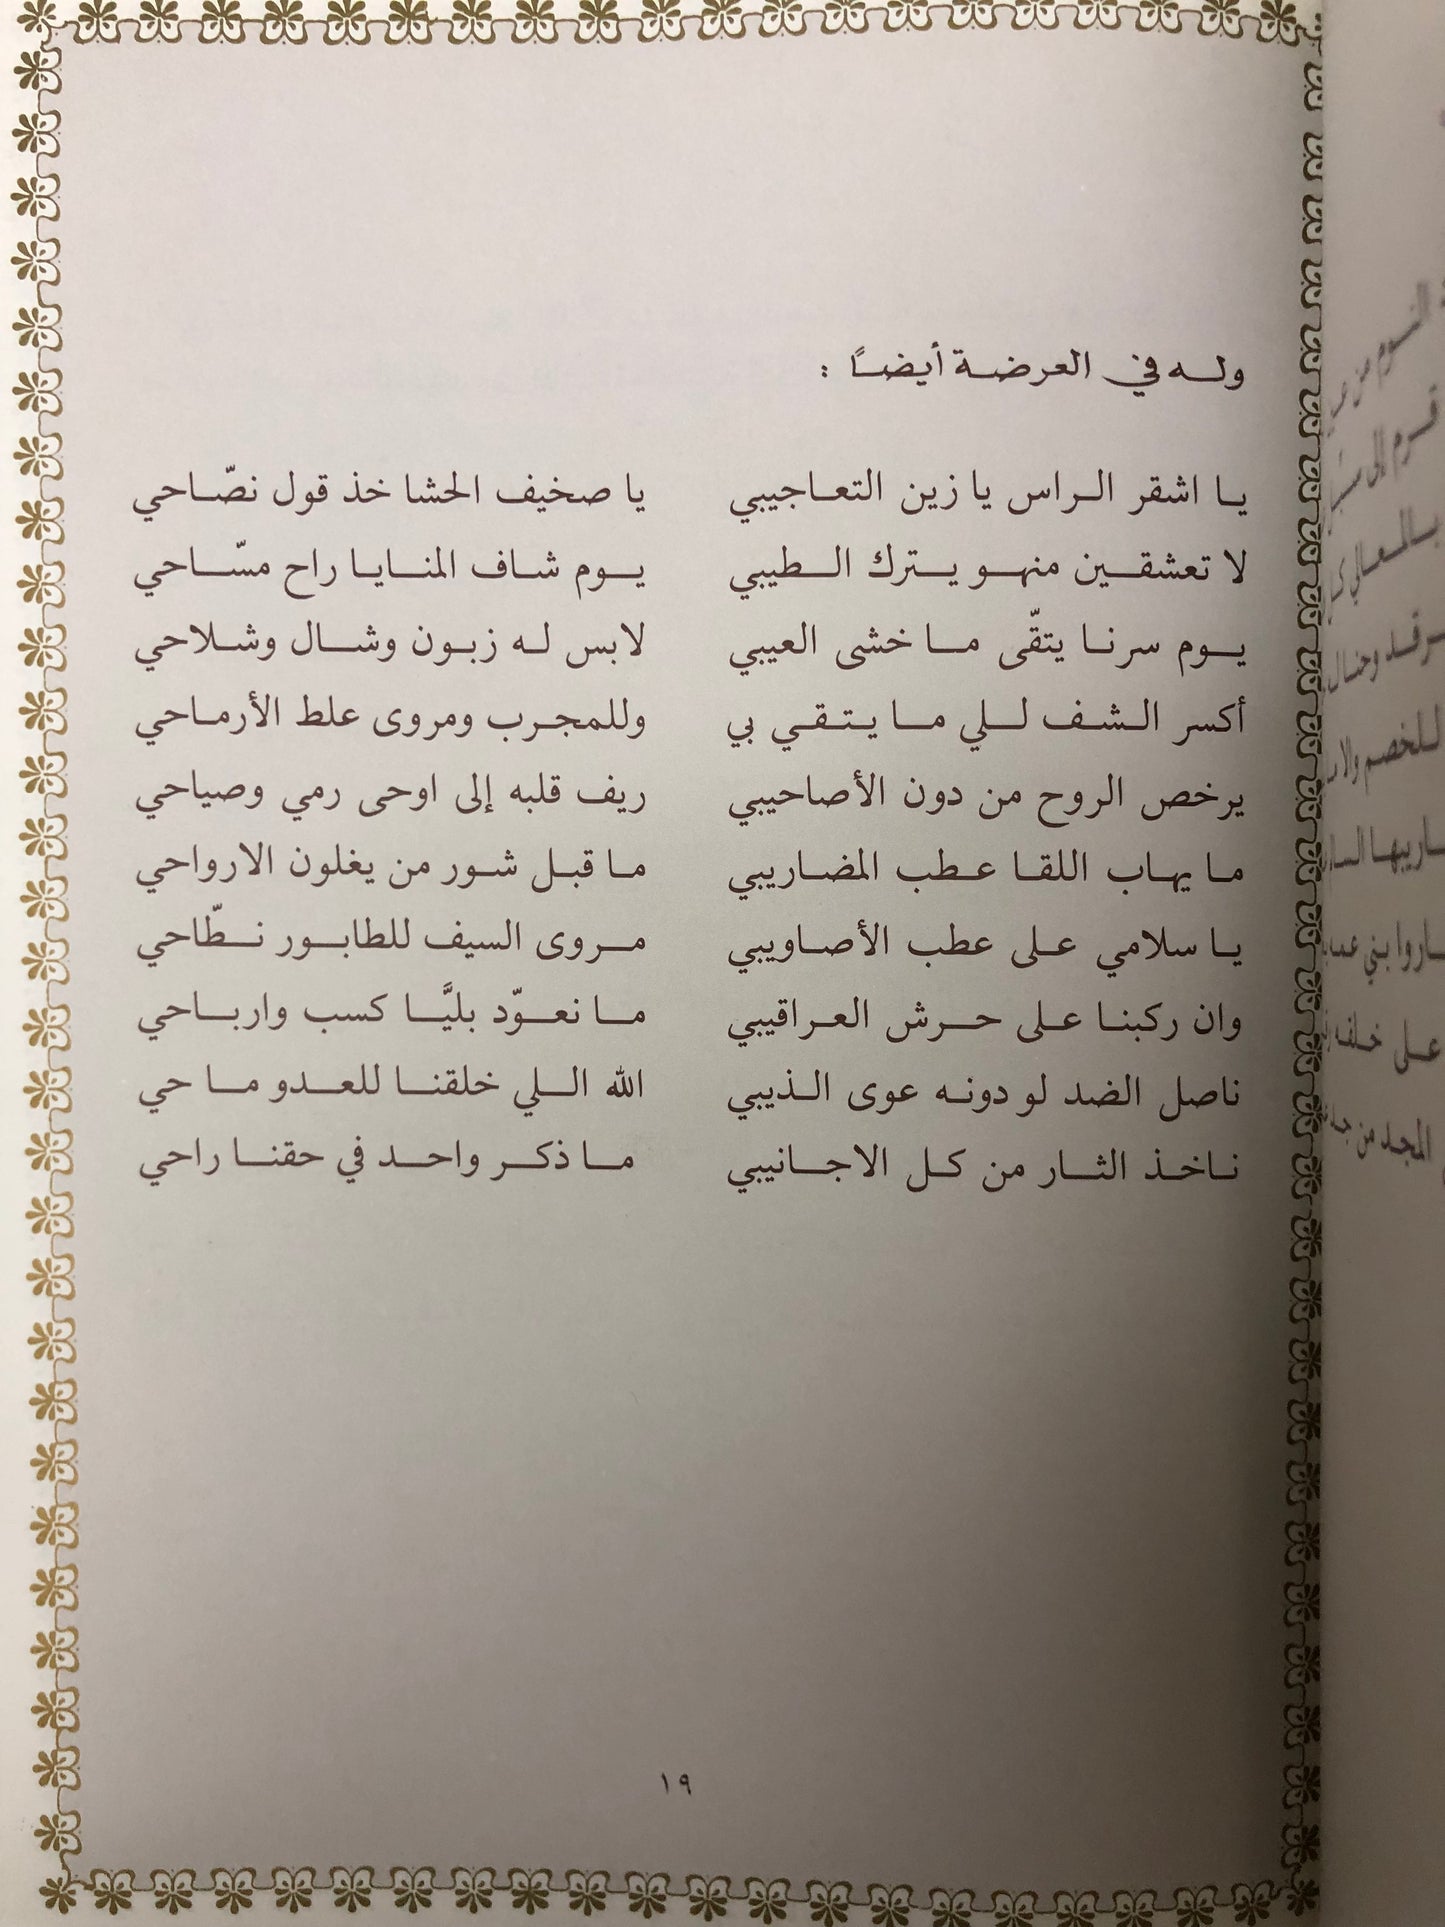 وله في العرضة أيضاً :
يا اشقر الراس يا زين التعاجيبي يا صخيف الحشا خذ قول نصّاحي
لا تعشقين منهو يترك الطيبي يوم شاف المنايا راح مسّاحي
يوم سرنا يتقّى ما خشى العيبي لابس له زبون وشال وشلاحي
أكسر الشف للي ما يتقي بي وللمجرب ومروى علط الأرماحي
يرخص الروح من دون الأصاحيبي ريف قلبه إلى اوحى رمي وصياحي
ما يهاب اللقا عطب المضاريبي ما قبل شور من يغلون الارواحي
يا سلامي على عطب الأصاويبي مروى السيف للطابور نطّاحي
وان ركبنا على حرش العراقيبي ما نعوّد بليَّا كسب وارباحي
ناصل الضد لو دونه عوى الذيبي الله اللي خلقنا للعدو ماحي
ناخذ الثار من كل الاجانيبي ما ذكر واحد في حقنا راحي
١٩
النوم من
إلى
بالمعالي
للخصم
على
المجد من